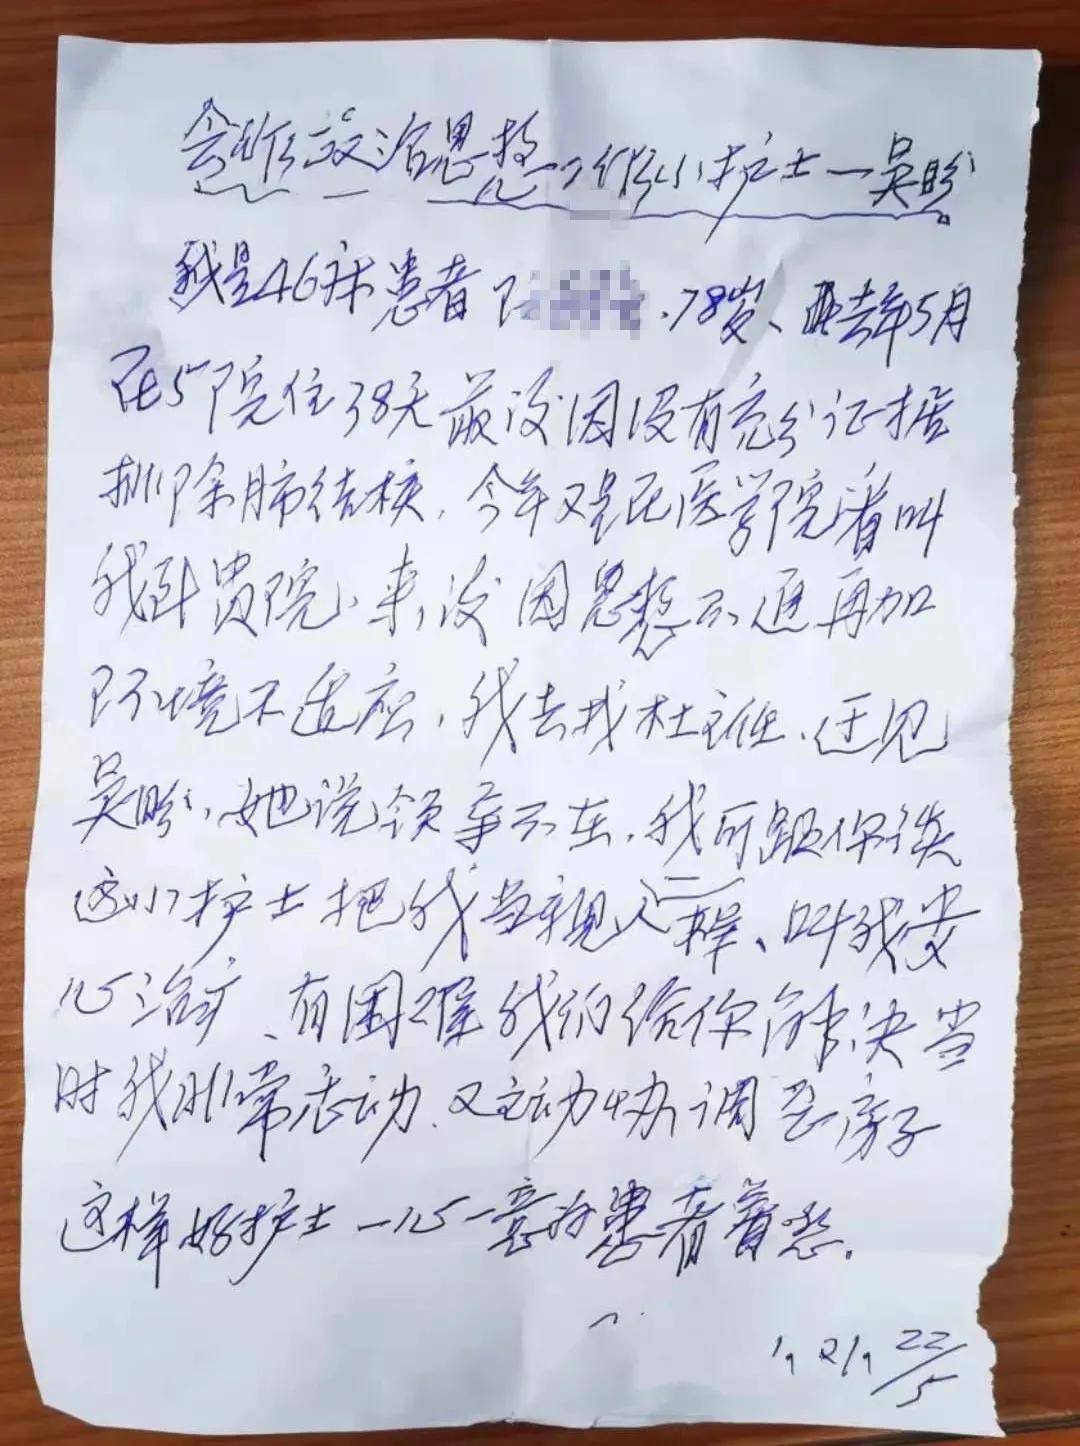 会做政治思想工作的小护士一吴盼
我是46床患者 .78岁、去年5月
在5院住38天最没因没有充分证据
排除肺结核.今年又是在医学院看叫
我卧贵院、来没因思想不通再加
环境不适应.我去找杜主任、迂见
吴盼、她说领导不在.我可跟你谈
这小护士把我当亲人一样、叫我安
心治疗、有困难我们给你解决当
时我非常志动.又主动协调至房子
这样好护士一心一意为患者着想.
22/5